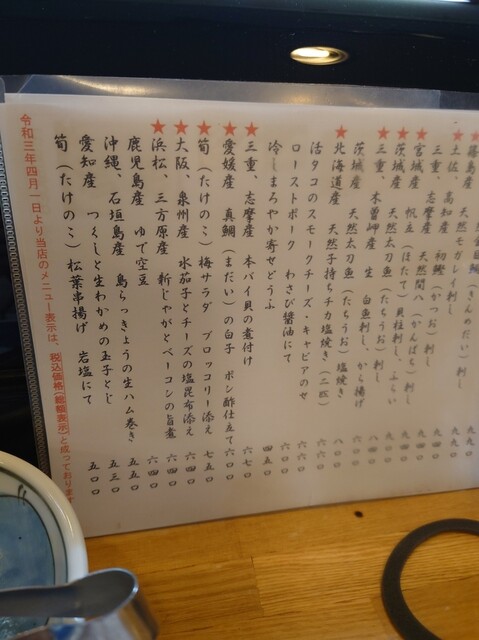 きんめだい）刺し 九九〇
福島産 天然モガレイ刺し 九九〇
★土佐、高知産 初鰹（かつお）刺し 九四〇
三重、志摩産 天然間八（かんぱち）刺し 九九〇
★宮城産 帆立（ほたて）貝柱刺し、ふらい
★茨城産 天然太刀魚（たちうお）刺し
★三重、木曽岬産 生 白魚刺し、から揚げ 八四〇
茨城産 天然太刀魚（たちうお）塩焼き
★北海道産 天然子持ちチカ塩焼き（二匹） 八〇〇
活タコのスモークチーズ・キャビアのせ
ローストポーク わさび醤油にて 六六〇
冷しまろやか寄せどうふ 四五〇
★三重、志摩産 本バイ貝の煮付け 六七〇
★愛媛産 真鯛（まだい）の白子 ポン酢仕立て 六〇〇
★筍（たけのこ）梅サラダ ブロッコリー添え 七五〇
★大阪、泉州産 水茄子とチーズの塩昆布添え 六四〇
★浜松、三方原産 新じゃがとベーコンの旨煮 六四〇
鹿児島産 ゆで空豆 五五〇
沖縄、石垣島産 島らっきょうの生ハム巻き 五三〇
愛知産 つくしと生わかめの玉子とじ 五五〇
筍（たけのこ）松葉串揚げ 岩塩にて
令和三年四月一日より当店のメニュー表示は、税込価格（総額表示）と成っております